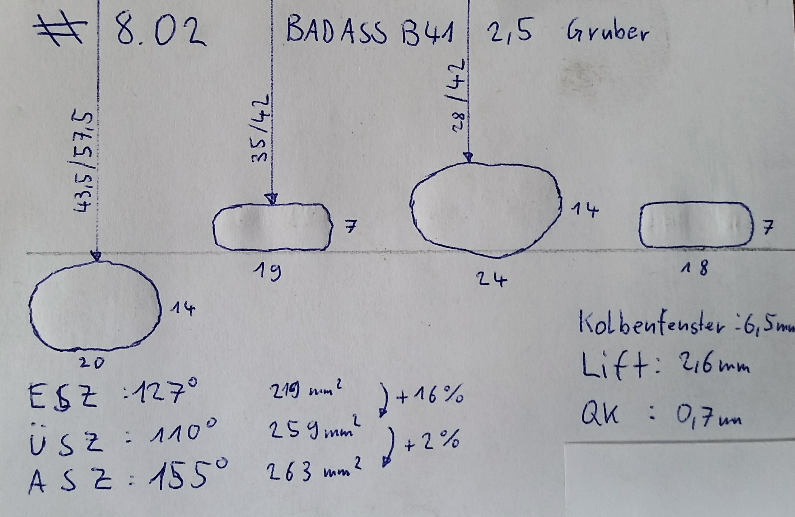 # 8.02 BADASS B41 2,5 Gruber
43,5/57,5
35/42
28/42
7
14
7
19
24
18
14
20
Kolbenfenster: 6,5mm
Lift: 2,6mm
QK : 0,7mm
ESZ : 127° 219 mm² ) +16%
ÜSZ : 110° 259mm² ) +2%
ASZ : 155° 263 mm²